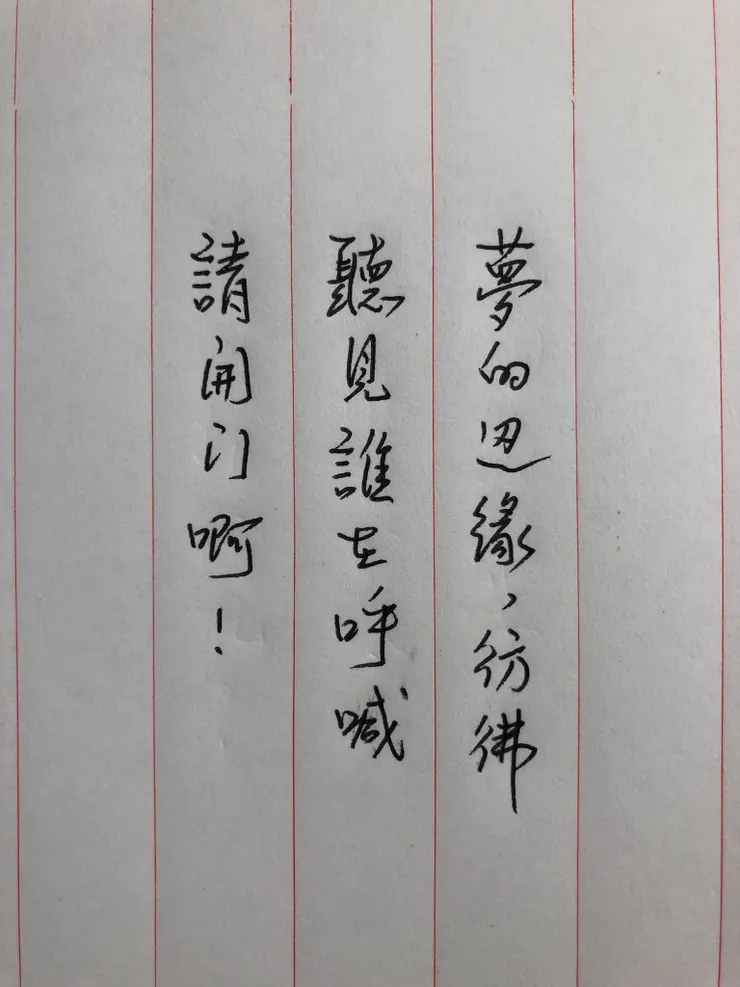 夢的边緣，彷彿
聽見誰在呼喊
請開门啊！